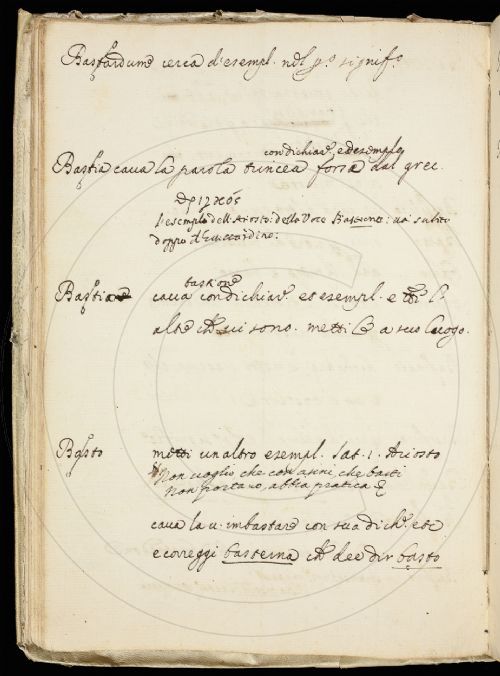 Bastardume cerca d'esempl. nel p.º signif.º
con dichiar.e ed esemple
Bastia cava la parola trincea forse dal grec.
l'esemplo dell'Ariosto: della Voce Bastione: va subito
doppo il Guiccardino:
bastione
Bastia cava con dichiar.e et esempl. e
altre che vi sono. metti a suo luogo.
Basto metti un altro esempl. Sat. 1. Ariosto
Non voglio che con asini che basti
Non portano, abbia pratica
cava la v. imbastare con sua dich.e etc
e correggi basterna che dee dir basto